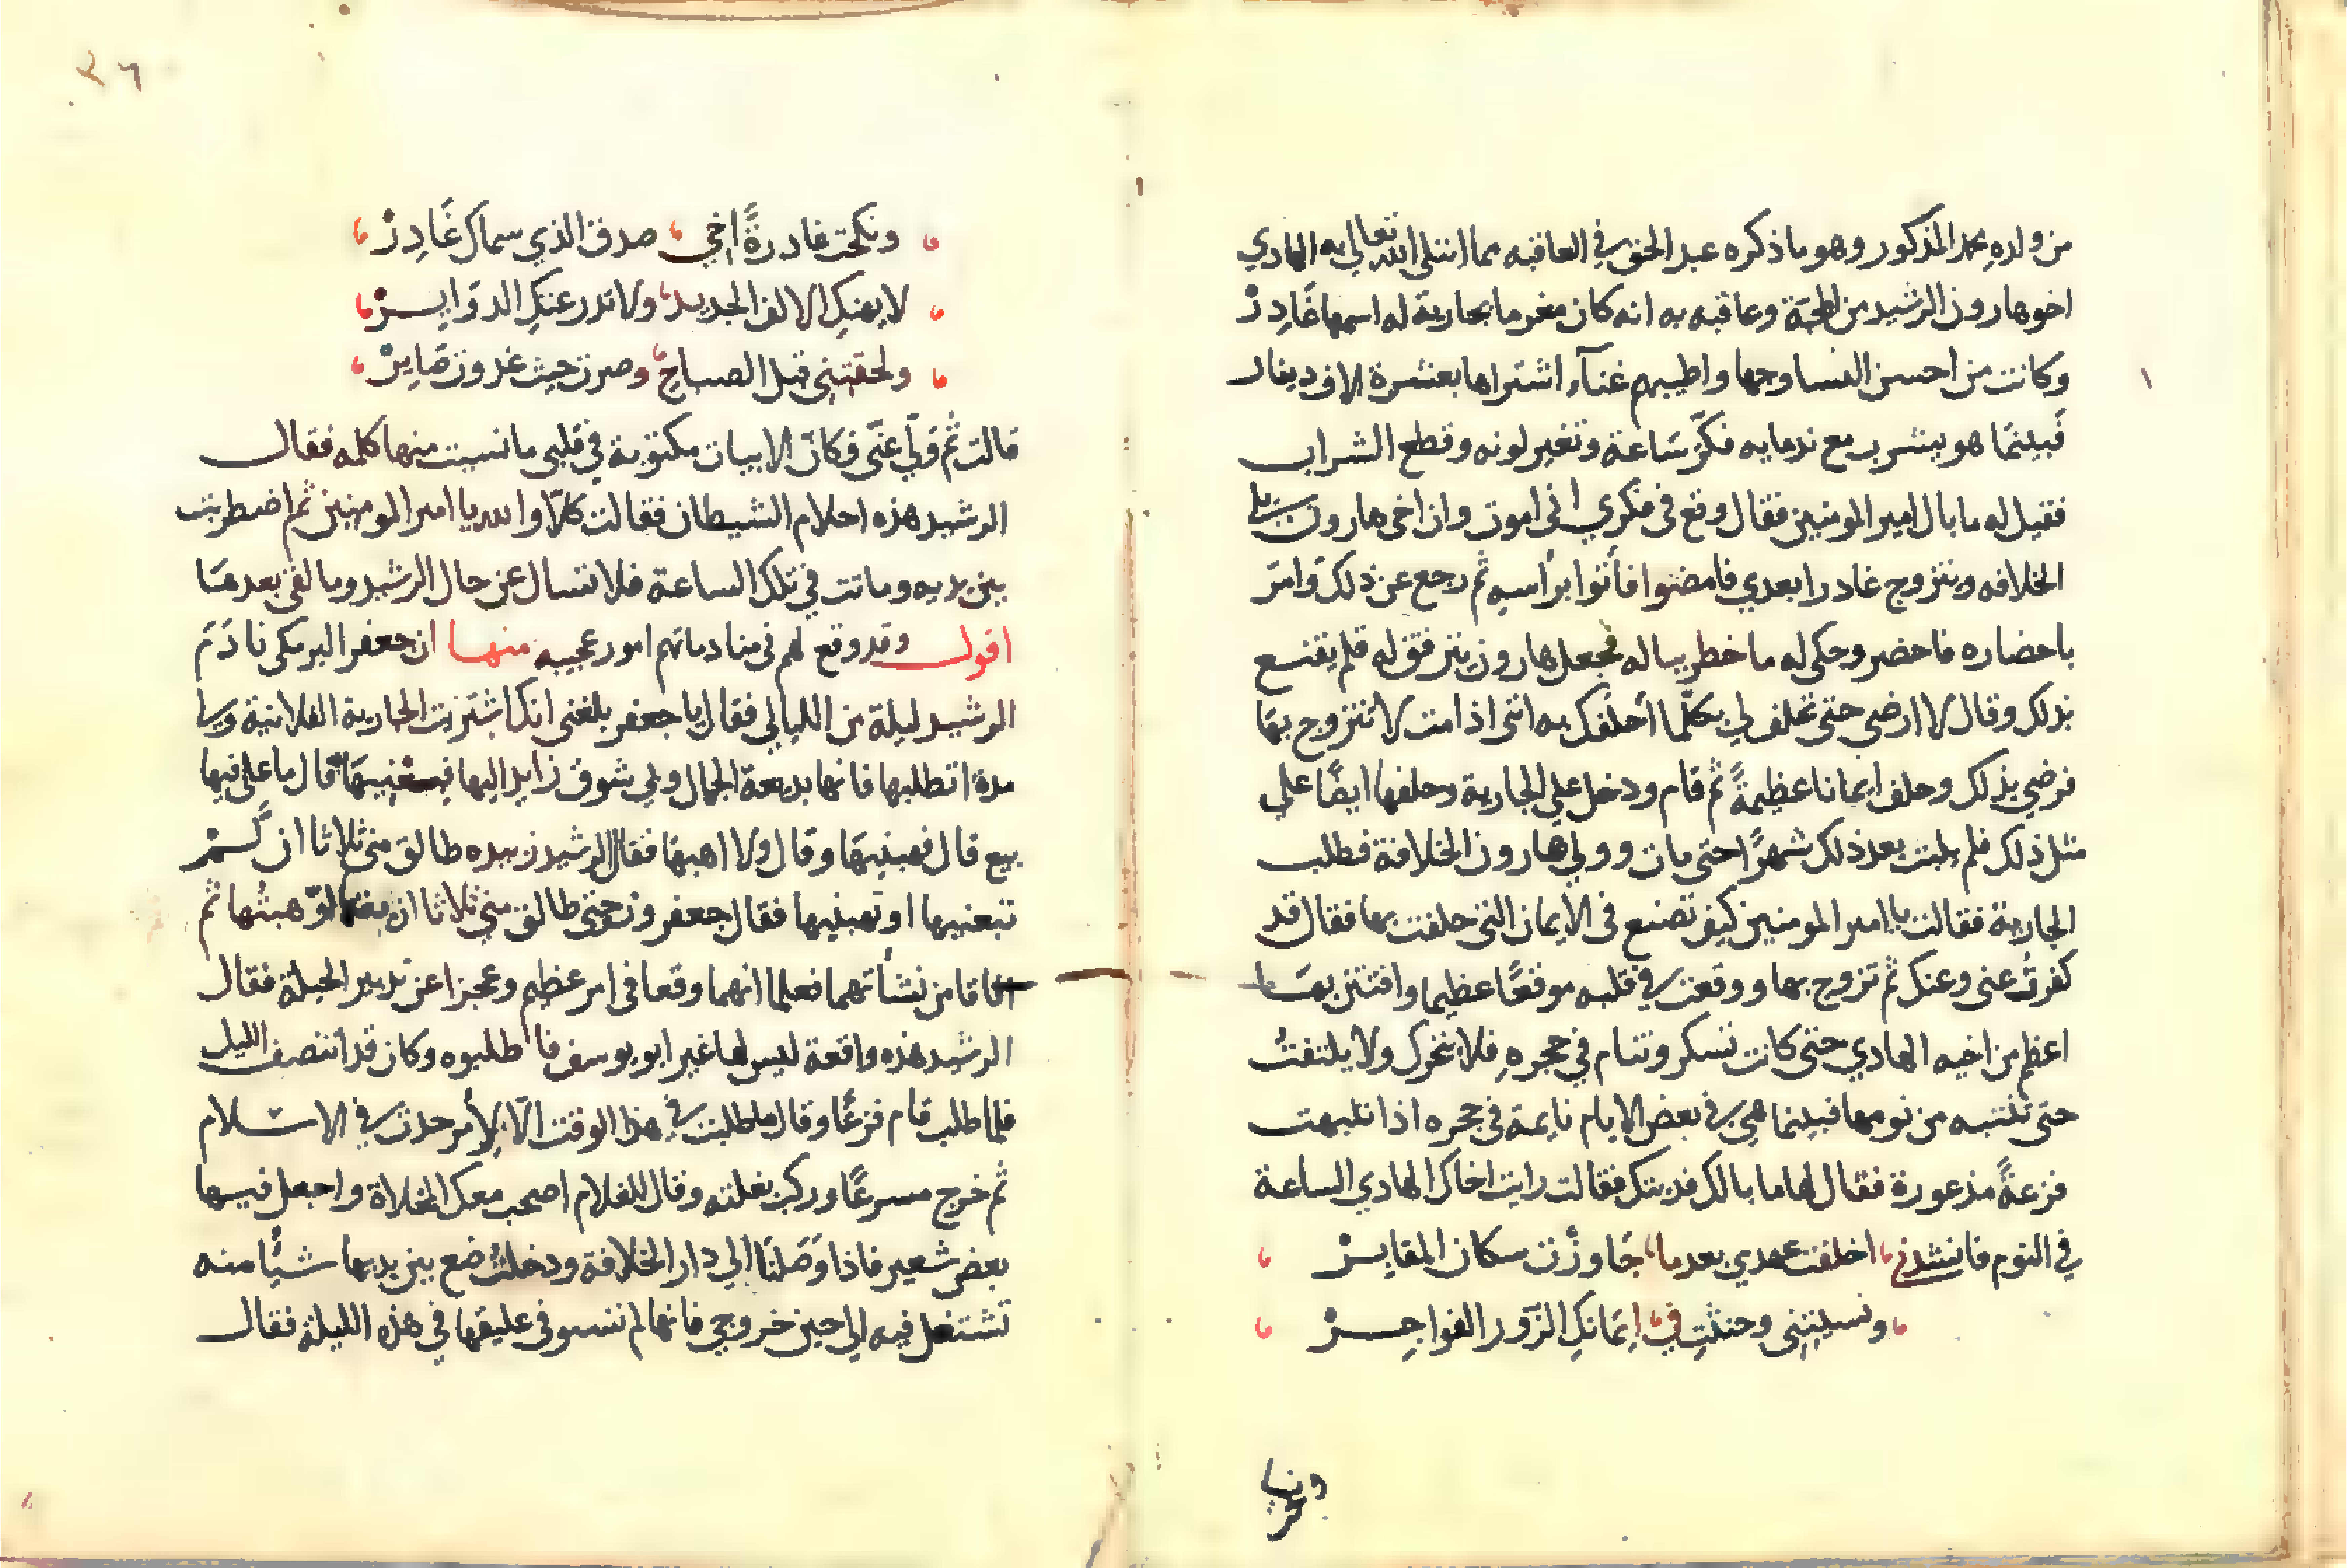 من ولده محمد المذكور وهو ما ذكره عبد الحق في العاقبه مما ابتلى الله تعالى به الهادي
اخو هارون الرشيد من المحبة وعاقبه به انه كان مغرما بجارية له اسمها غَادِرْ
وكانت من احسن النسا وجها واطيبهم غنآء اشتراها بعشرة الاف دينار
فَبينمَا هو يشرب مع ندمايه فكّر سَاعة وتغير لونه وقطع الشراب
فقيل له ما بال امير المومنين فقال وقع في فكري اني اموت وان اخي هارون يلي
الخلافه ويتزوج غادرا بعدي فامضوا فأتوا برأسه ثم رجع عن ذلك وَامَرَ
باحضاره فاحضر وحكى له ما خطر بباله فجعل هارون يترفق له فلم يقنع
بذلك وقال لا ارضى حتى تحلف لي بكلّما أحلفك به انني اذا مت لا تتزوج بهَا
فرضي بذلك وحلف ايمانا عظيمةً ثم قام ودخل على الجارية وحلفها ايضًا على
مثل ذلك فلم يلبث بعد ذلك شهرًا حتى مات وولي هارون الخلافة فطلب
الجارية فقالت يا امير المومنين كيف تصنع في الايمان التي حلفت بها فقال قد
كفرتُ عني وعنك ثم تزوج بها ووقعت في قلبه موقعًا عظيما وافتتن بهَا
اعظم من اخيه الهادي حتى كانت تسكر وتنام في حجرهِ فلا يتحرك ولا يلتفتُ
حتى تنتبه من نومها فبينما هي في بعض الايام نايمة في حجره اذ انتبهت
فزعةً مذعورة فقال لها ما بالك فديتك فقالت رايت اخاك الهادي الساعة
في النوم فانشدني اخلفت عهدي بعدما جَاوزْت سكان المقابرْ
ونسيتِنِي وحنثتِ في اِيمَانكِ الزّور الفواجِرْ
ونكحت غادرةً اخي صدق الذي سماك غَادِرْ
لا يهنكِ الالف الجديد ولا تدر عنكِ الدوَايرْ
ولحقتِنِي قبل الصباحِ وصرت حيث غدوت صَايرْ
قالت ثم وَلّى عنّي وكانّ الابيات مكتوبة في قلبي ما نسيت منها كلمه فقال
الرشيد هذه احلام الشيطان فقالت كلاّ والله يا امير المومنين ثم اضطربت
بين يديه وماتت في تلك الساعة فلا تسال عن حال الرشيد وما لقى بعدهَا
اقول وقد وقع لهم في منادماتهم امور عجيبه منها ان جعفر البرمكي نادَمَ
الرشيد ليلة من الليالي فقال يا جعفر بلغني انك اشتريت الجارية الفلانية ولي
مدة اتطلبها فانها بديعة الجمال ولي شوق زايد اليها فبعنيهَا قال ما على فيها
بيع قال فهبنيهَا وقال ولا اهبهَا فقال الرشيد زبيده طالق مني ثلاثا ان لَمْ
تبعنيها او تهبنيها فقال جعفر وزوجتي طالق مني ثلاثا ان بعتها او وهبتُها ثم
افاقا من نشأتهما فعلما انهما وقعا في امر عظيم وعجزا عن تدبير الحيلة فقال
الرشيد هذه واقعة ليس لها غير ابو يوسف فاطلبوه وكان قد انتصف الليل
فلما طلب قام فزعًا وقال ما طلبت في هذا الوقت الّا لِأمر حدث في الاسلام
ثم خرج مسرعًا وركب بغلته وقال للغلام اصحب معك المخلاة واجعل فيها
بعض شعير فاذا وَصَلنَا الي دار الخلافة ودخلتُ ضع بين يديها شيًأ منه
تشتغل فيه الي حين خروجي فانها لم تستوفى عليقها في هذه الليلة فقال